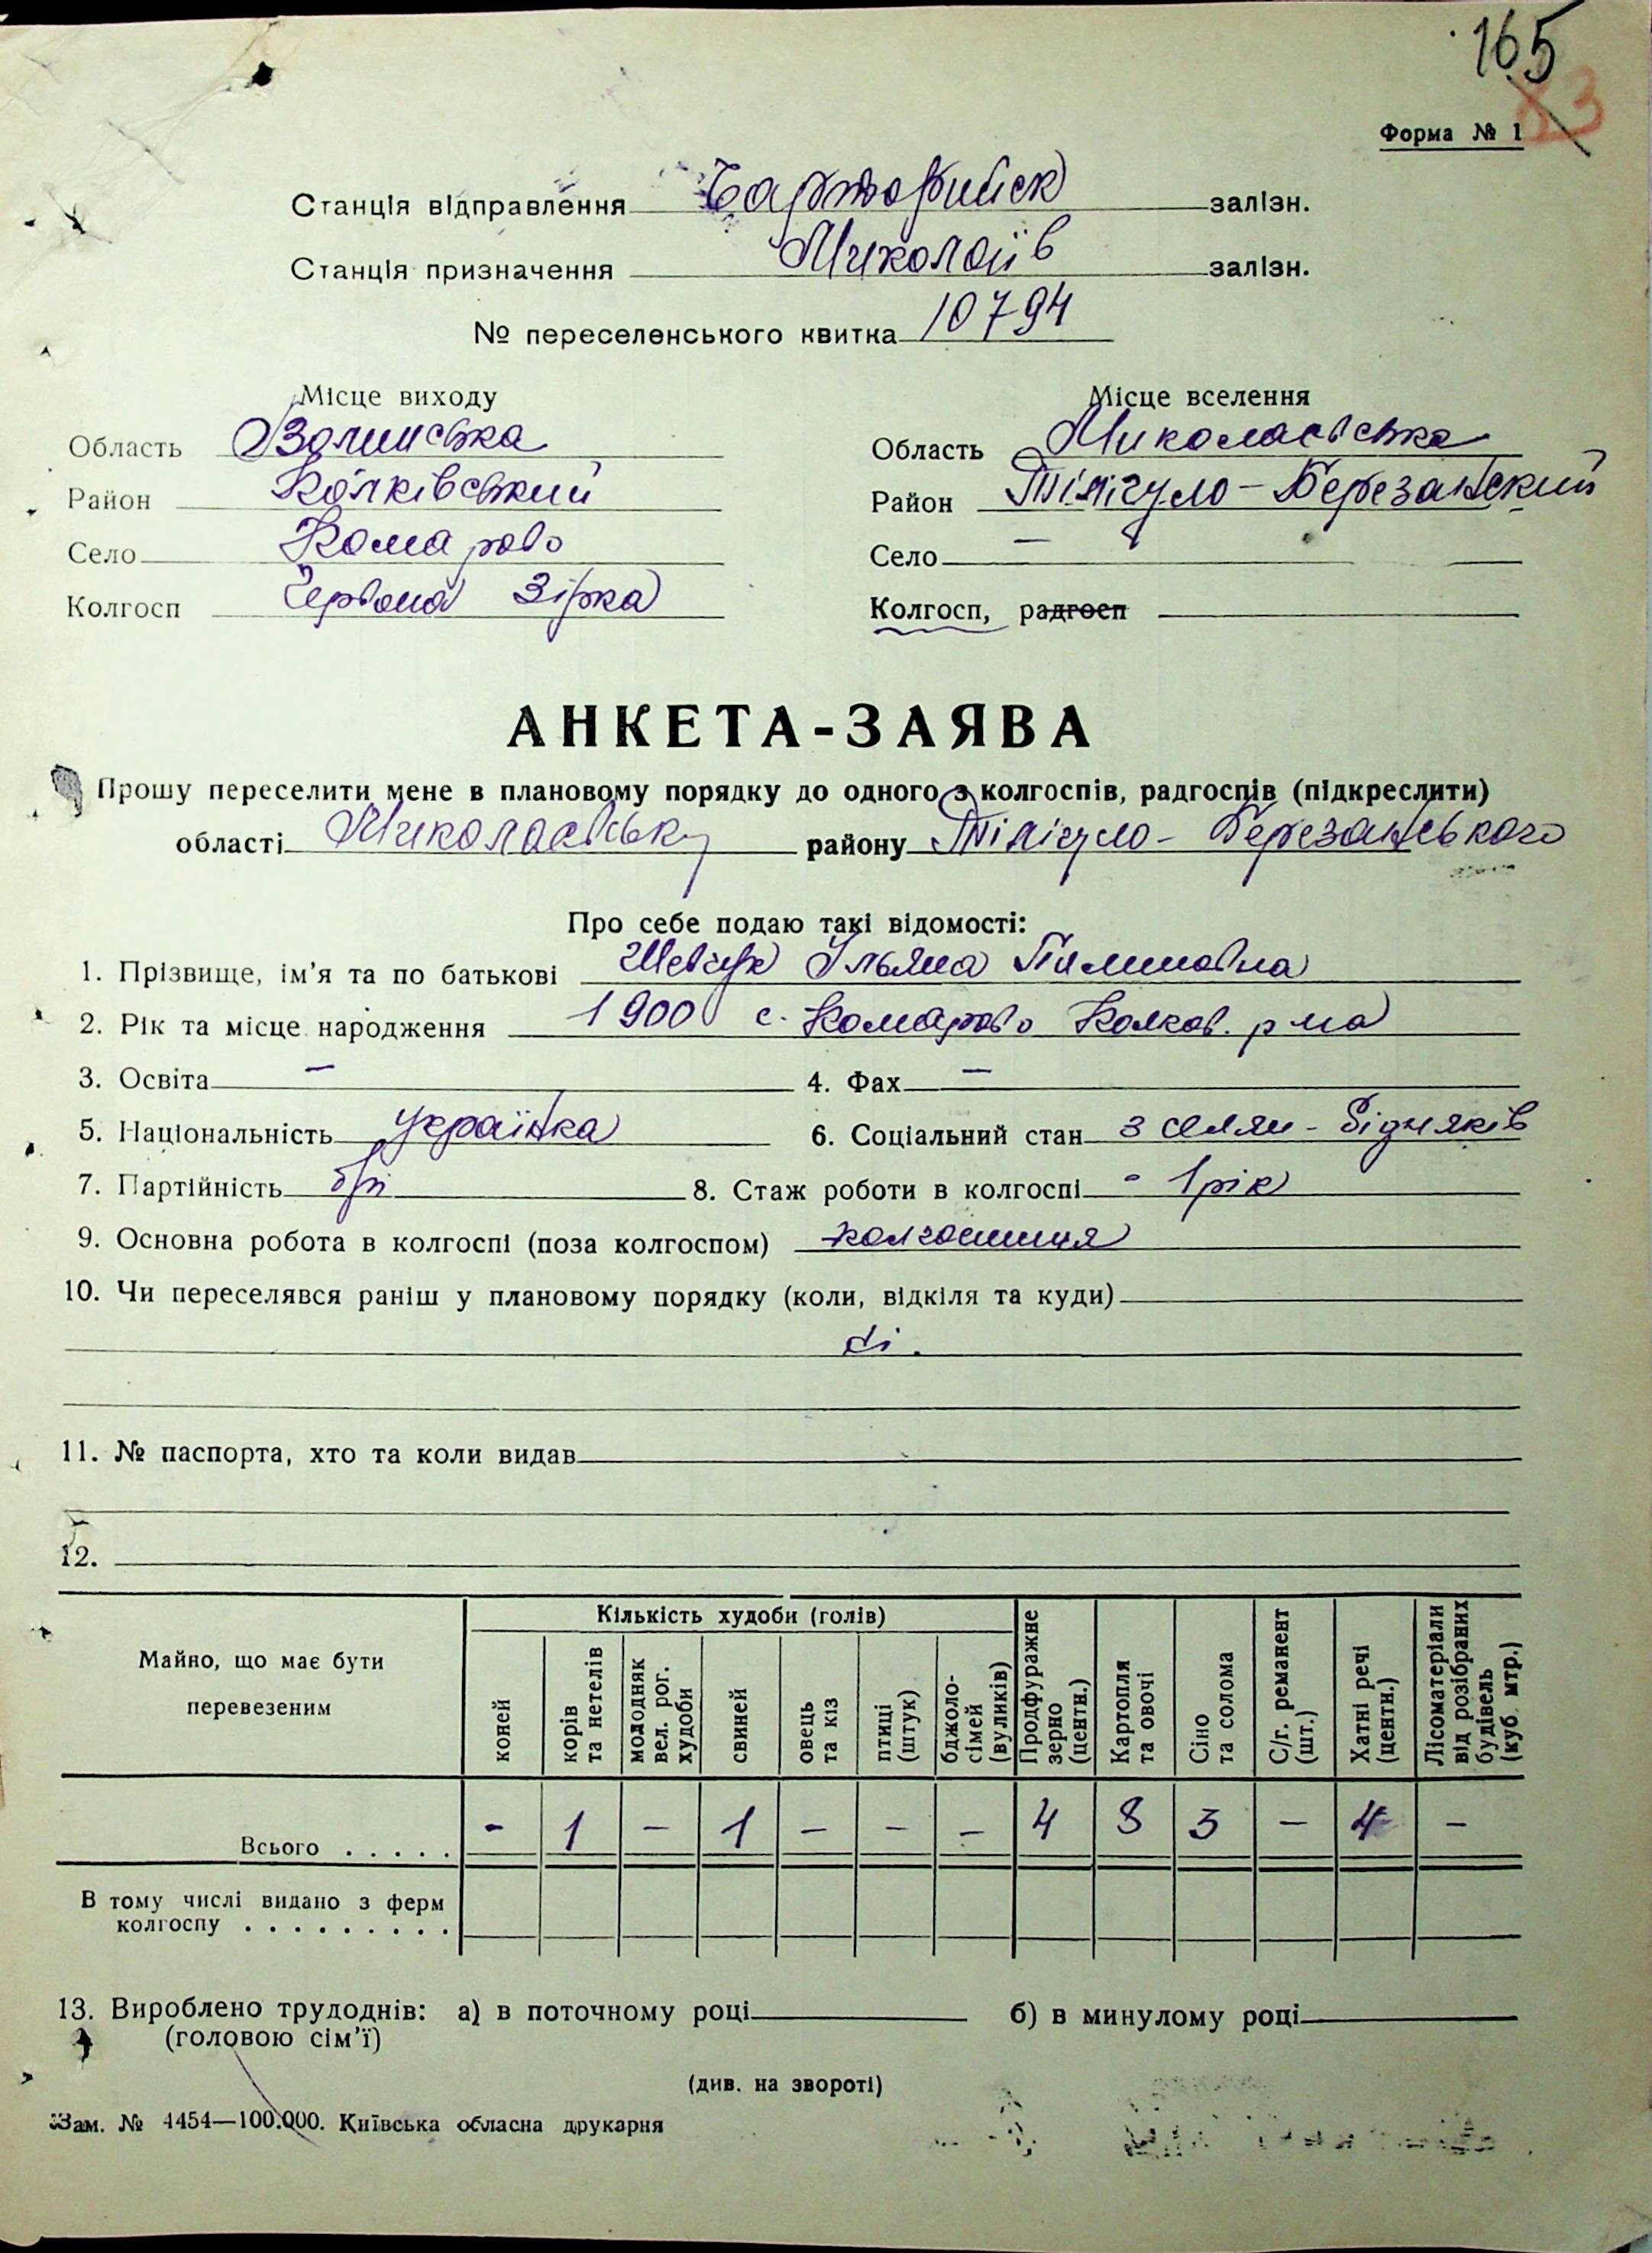 165
83
Форма № 1
Станція відправлення Чарторийск залізн.
Станція призначення Миколаїв залізн.
№ переселенського квитка 10794
Місце виходу Місце вселення
Область Волинська Область Миколаївська
Район Колківський Район Тілігуло-Березанский
Село Комарово Село —
Колгосп Червона Зірка Колгосп, радгосп
АНКЕТА-ЗАЯВА
Прошу переселити мене в плановому порядку до одного з колгоспів, радгоспів (підкреслити)
області Миколаївську району Тілігуло-Березанського
Про себе подаю такі відомості:
1. Прізвище, ім'я та по батькові Шевчук Ульяна
2. Рік та місце народження 1900 с. Комарово Колков. р-на
3. Освіта — 4. Фах —
5. Національність українка 6. Соціальний стан з селян-бідняків
7. Партійність б/п 8. Стаж роботи в колгоспі - 1 рік
9. Основна робота в колгоспі (поза колгоспом) колгоспниця
10. Чи переселявся раніш у плановому порядку (коли, відкіля та куди)
ні.
11. № паспорта, хто та коли видав
12.
Майно, що має бути перевезеним
Кількість худоби (голів)
коней
корів та нетелів
молодняк вел. рог. худоби
свиней
овець та кіз
птиці (штук)
бджоло-сімей (вуликів)
Продфуражне зерно (центн.)
Картопля та овочі
Сіно та солома
С/г. реманент (шт.)
Хатні речі (центн.)
Лісоматеріали від розібраних будівель (куб. мтр.)
Всього . . . . . - 1 — 1 — — — 4 8 3 — 4 —
В тому числі видано з ферм
колгоспу . . . . . . . . .
13. Вироблено трудоднів: а) в поточному році б) в минулому році
(головою сім'ї)
(див. на звороті)
Зам. № 4454—100.000. Київська обласна друкарня